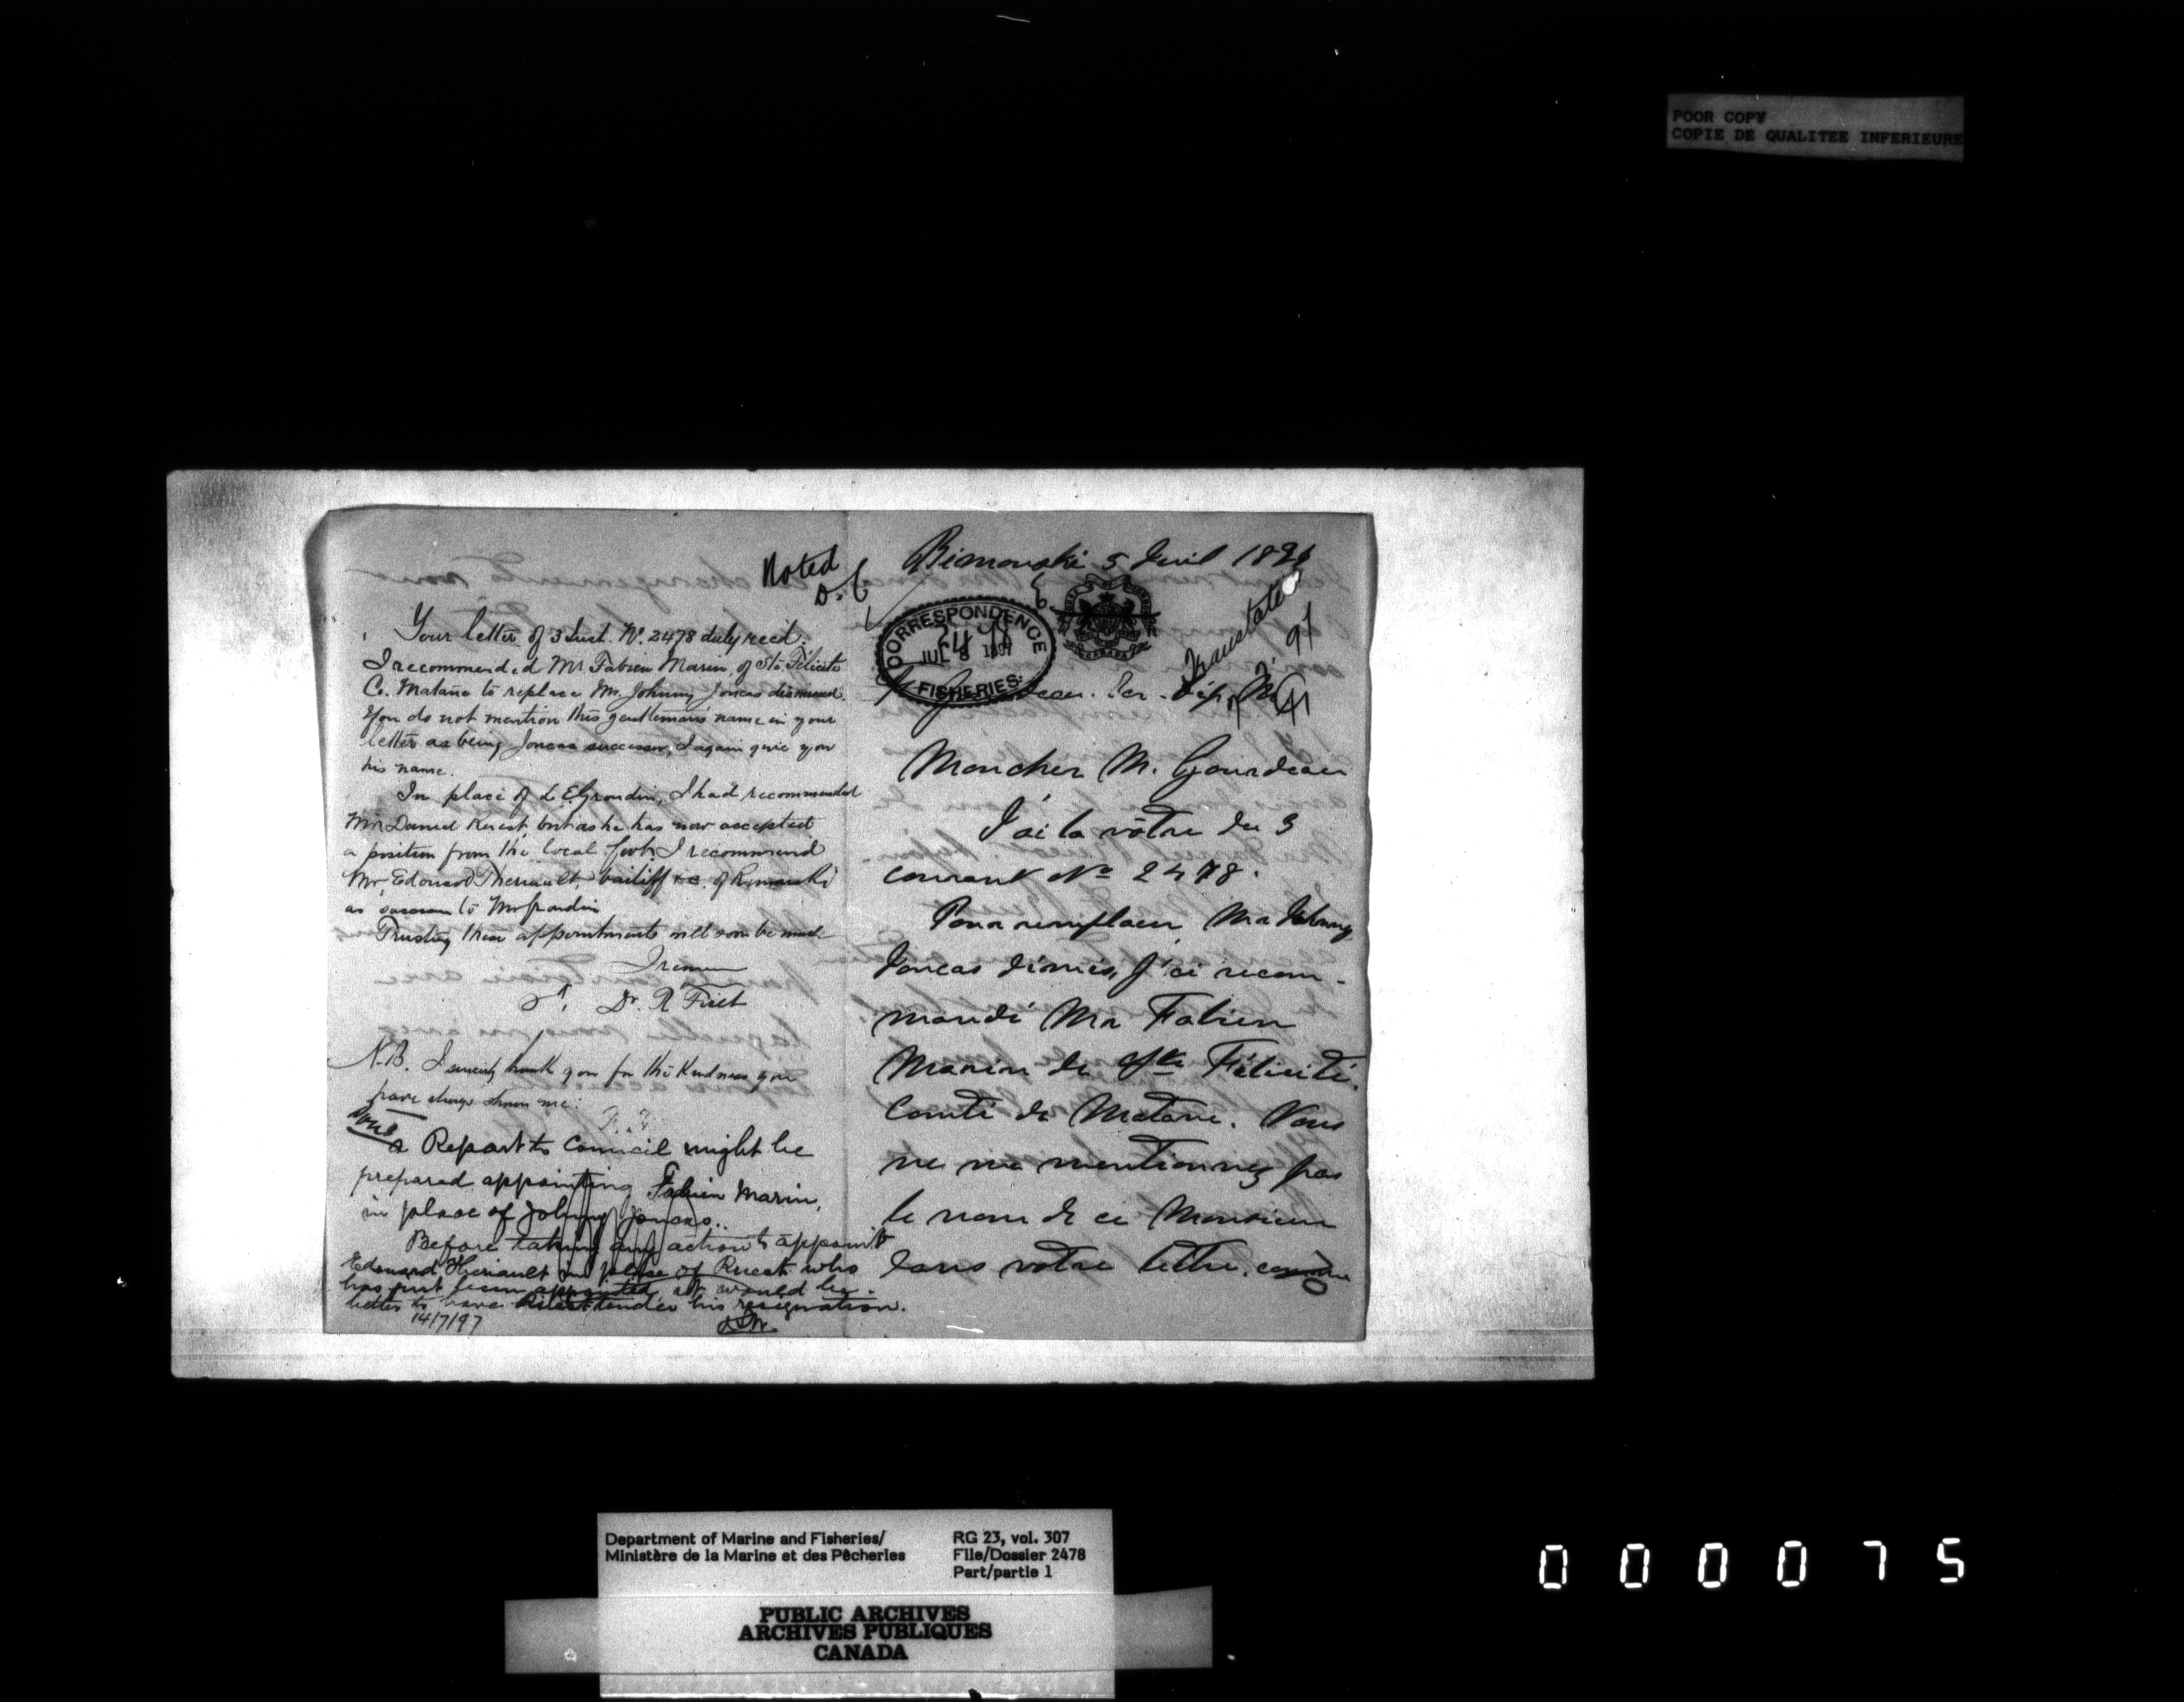 POOR COPY
COPIE DE QUALITEE INFERIEURE
Noted
Your letter of 3 Inst. No. 2478 duly recd.
I recommended Mr Fabien Marin, of Ste. Félicité
Co. Matane to replace Mr. Johnny Joncas dismissed.
You do not mention this gentleman's name in your
letter as being Joncas successor, I again give you
his name.
In place of L. E. Grondin, I had recommended
Mr Daniel Ruest, but as he has now accepted
a position from the local Govt. I recommend
Mr. Edouard Theriault, bailiff &c. of Rimouski
as successor to Mr Grondin
Trusting these appointments will soon be made
I remain
Dr. R Fiset
N.B. I sincerely thank you for the kindness you
have always shown me.
a Report to Council might be
prepared appointing Fabien Marin,
in place of Johnny Joncas..
Before taking any action to appoint
Edouard Theriault in place of Ruest who
has just been appointed, it would be
better to have Ruest tender his resignation.
14/7/97
Rimouski 5 Juil 1897
Translated
CORRESPONDENCE
JUL 8 1897
FISHERIES.
Moncher M. Gourdeau
J'ai la vôtre du 3
courant No 2478.
Pour remplacer Mr Johnny
Joncas démis, j'ai recom-
mandé Mr Fabien
Marin de Ste Félicité.
Comté de Matane. Vous
ne me mentionnez pas
le nom de ce Monsieur
dans votre lettre. comme
Department of Marine and Fisheries/
Ministère de la Marine et des Pêcheries
RG 23, vol. 307
File/Dossier 2478
Part/partie 1
PUBLIC ARCHIVES
ARCHIVES PUBLIQUES
CANADA
000075